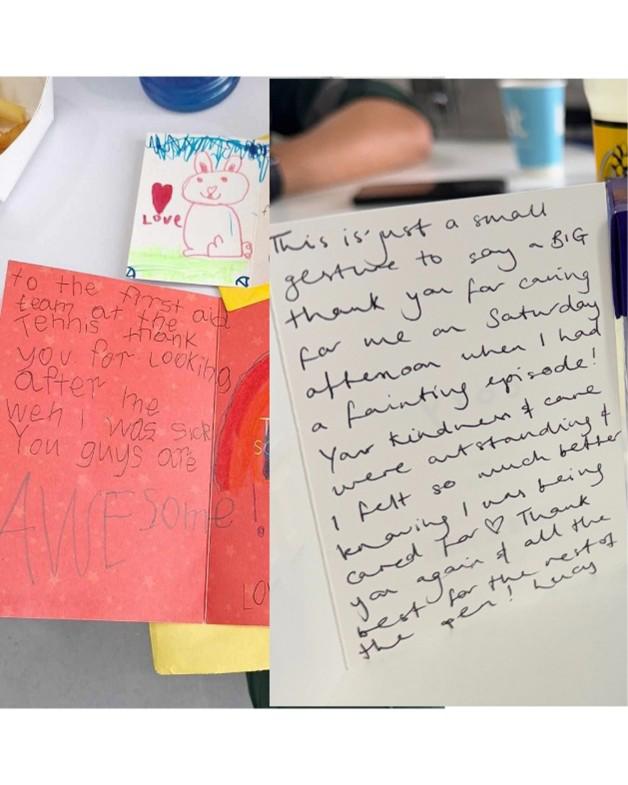 Love
to the first aid
team at the
Tennis thank
you for Looking
after me
weh I was sick
You guys are
AWESome!
LO
This is just a small
gesture to say a BIG
thank you for caring
for me on Saturday
afternoon when I had
a fainting episode!
Your kindness & care
were outstanding &
I felt so much better
knowing I was being
cared for ♡ Thank
you again & all the
best for the rest of
the Lucy